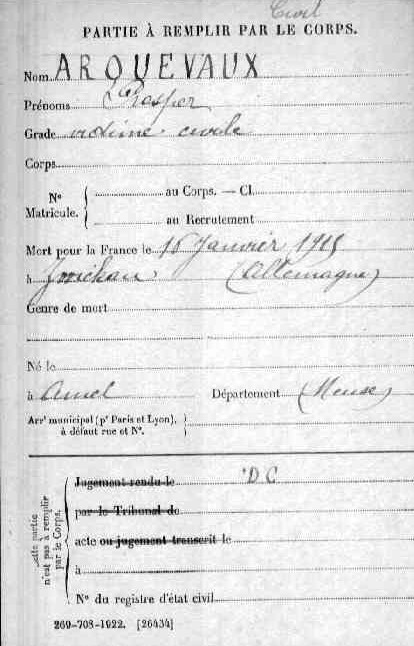 Civil
PARTIE À REMPLIR PAR LE CORPS.
Nom ARQUEVAUX
Prénoms Prosper
Grade victime civile
Corps
Nº Matricule. { au Corps. — Cl.
au Recrutement
Mort pour la France le 16 Janvier 1915
à Zwickau (Allemagne)
Genre de mort
Né le
à Amel Département (Meuse)
Arrt municipal (pr Paris et Lyon),
à défaut rue et Nº.
Cette partie
n'est pas à remplir
par le Corps.
Jugement rendu le DC
par le Tribunal de
acte ou jugement transcrit le
à
Nº du registre d'état civil
269-708-1922. [26434]